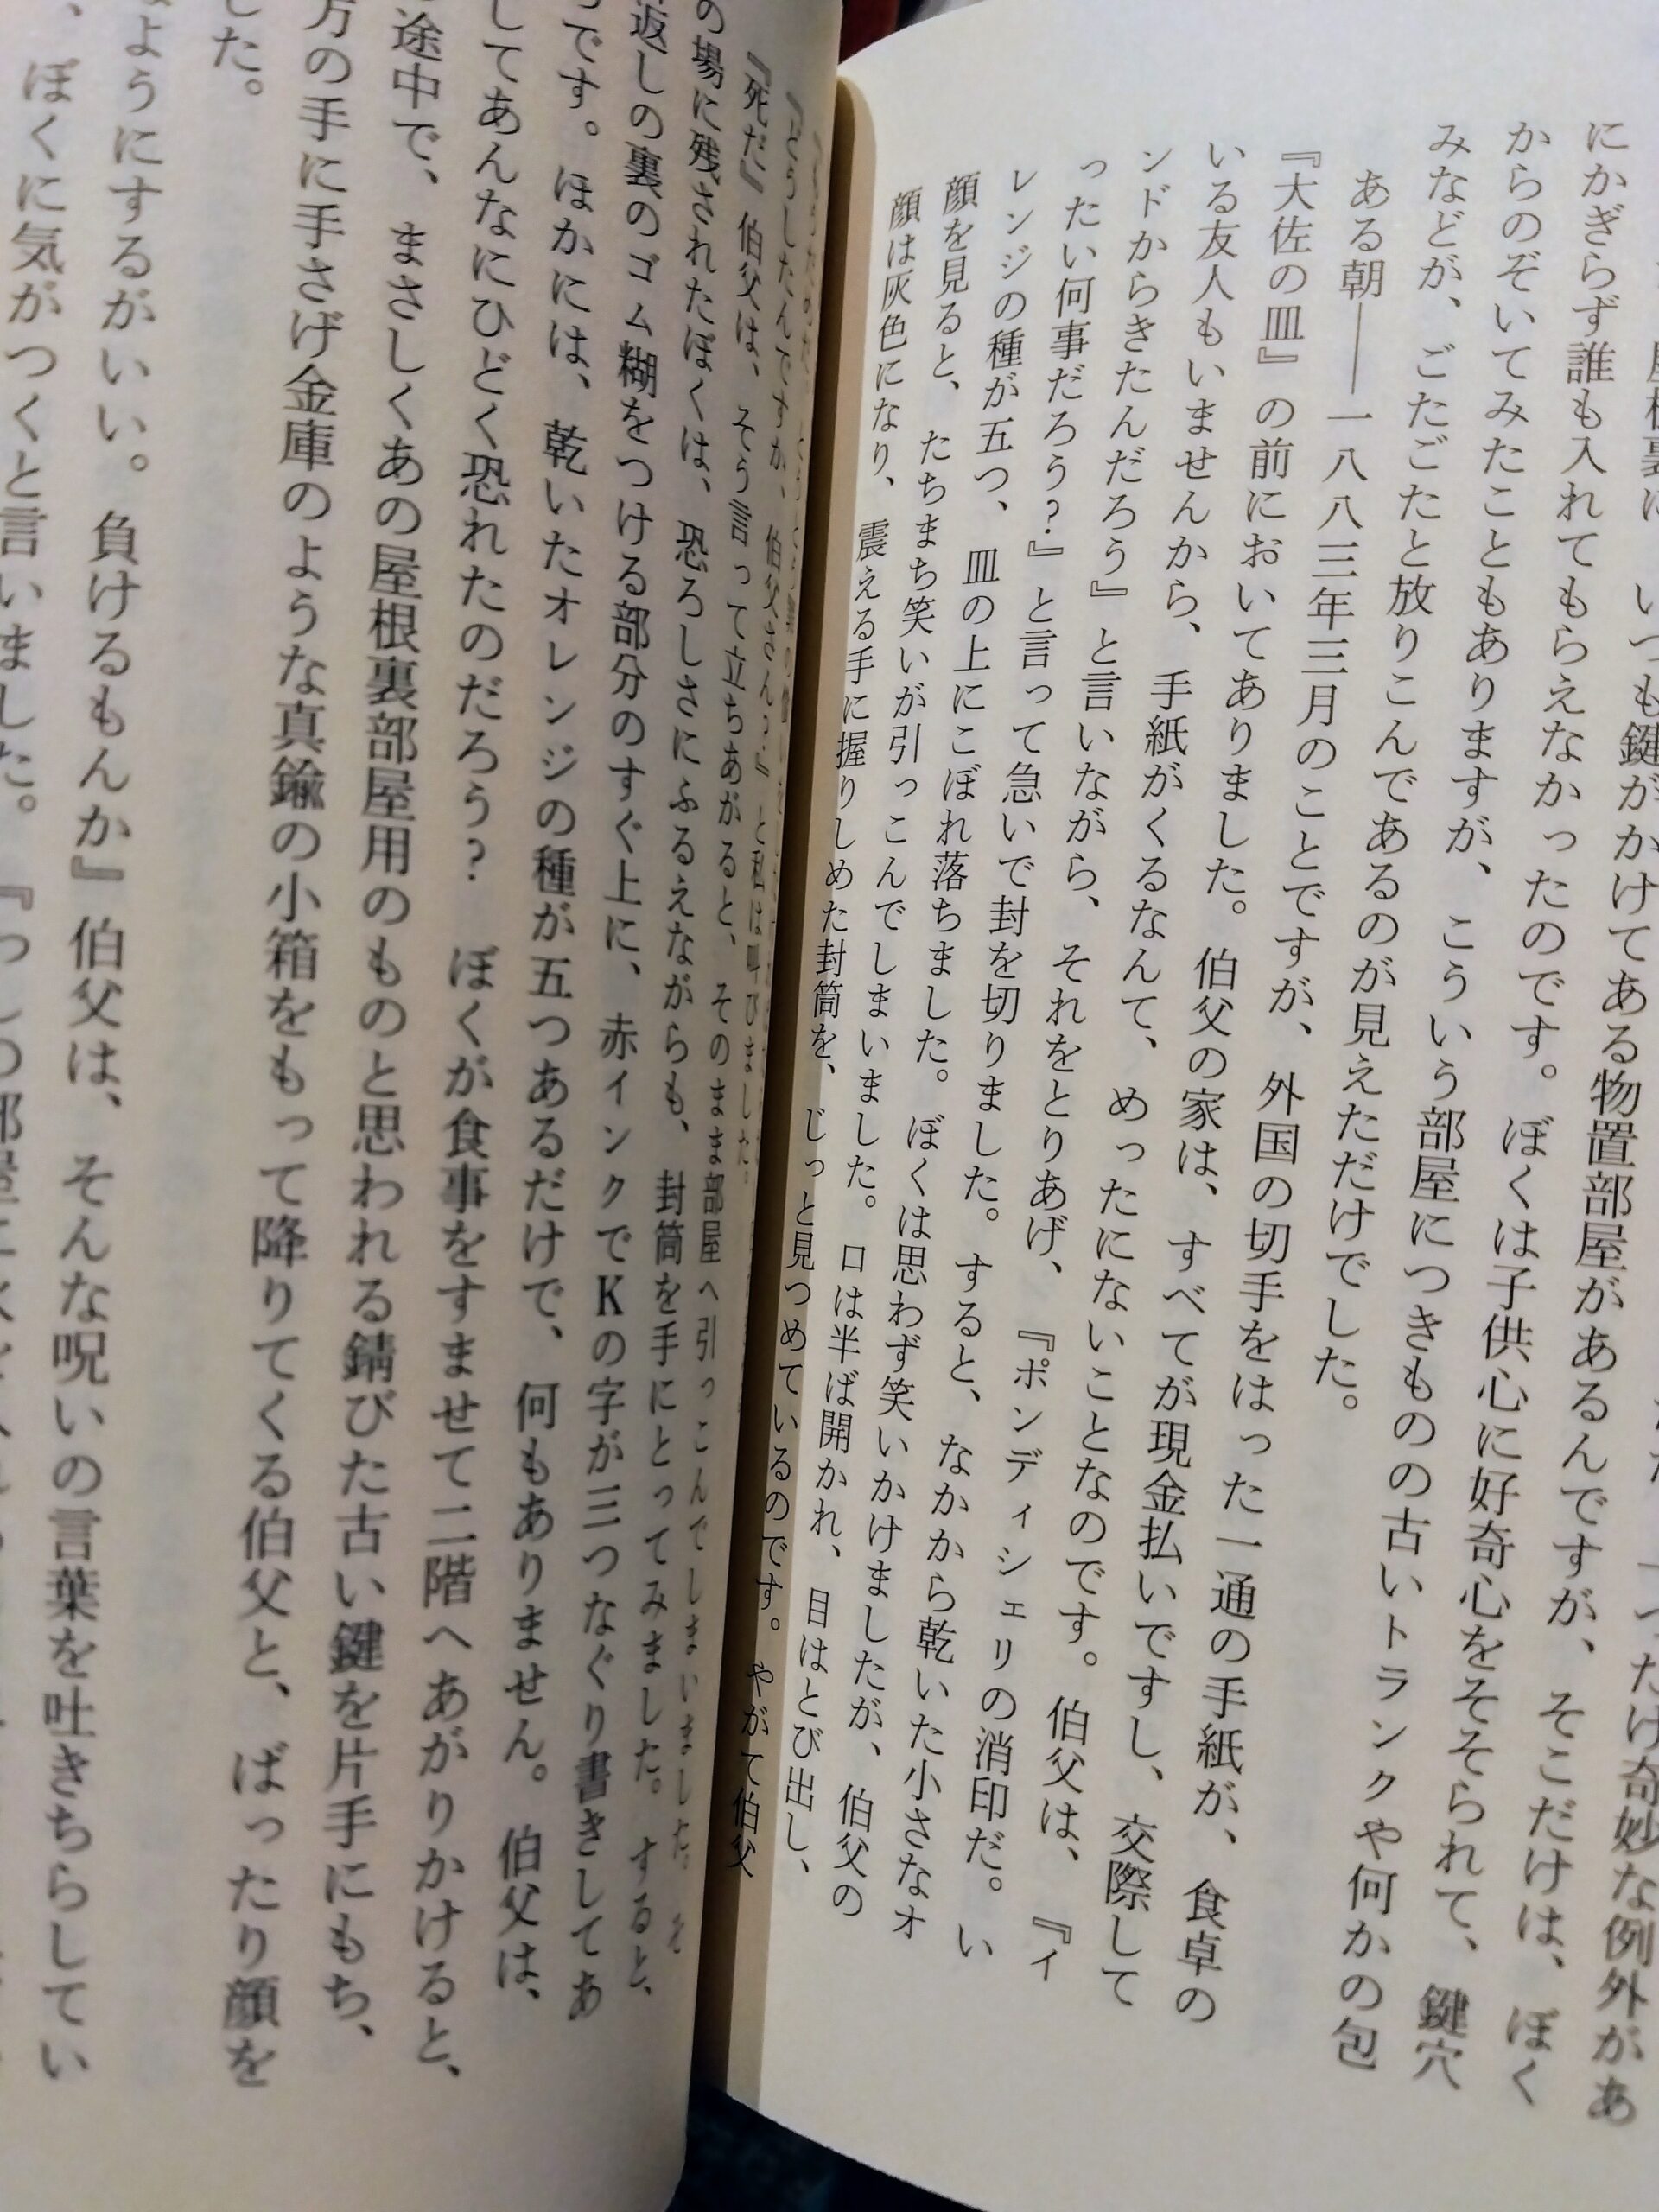 屋根裏に、いつも鍵がかけてある物置部屋があるんですが、そこだけは、ぼく
にかぎらず誰も入れてもらえなかったのです。ぼくは子供心に好奇心をそそられて、鍵穴
からのぞいてみたこともありますが、こういう部屋につきものの古いトランクや何かの包
みなどが、ごたごたと放りこんであるのが見えただけでした。
ある朝――一八八三年三月のことですが、外国の切手をはった一通の手紙が、食卓の
『大佐の皿』の前においてありました。伯父の家は、すべてが現金払いですし、交際して
いる友人もいませんから、手紙がくるなんて、めったにないことなのです。伯父は、『イ
ンドからきたんだろう』と言いながら、それをとりあげ、『ポンディシェリの消印だ。い
ったい何事だろう?』と言って急いで封を切りました。すると、なかから乾いた小さなオ
レンジの種が五つ、皿の上にこぼれ落ちました。ぼくは思わず笑いかけましたが、伯父の
顔を見ると、たちまち笑いが引っこんでしまいました。口は半ば開かれ、目はとび出し、
顔は灰色になり、震える手に握りしめた封筒を、じっと見つめているのです。やがて伯父
『どうしたんですか、伯父さん?』と私は叫びました。
『死だ』伯父は、そう言って立ちあがると、そのまま部屋へ引っこんでしまいました。そ
の場に残されたぼくは、恐ろしさにふるえながらも、封筒を手にとってみました。すると、
返しの裏のゴム糊をつける部分のすぐ上に、赤インクでKの字が三つなぐり書きしてあ
です。ほかには、乾いたオレンジの種が五つあるだけで、何もありません。伯父は、
してあんなにひどく恐れたのだろう? ぼくが食事をすませて二階へあがりかけると、
途中で、まさしくあの屋根裏部屋用のものと思われる錆びた古い鍵を片手にもち、
方の手に手さげ金庫のような真鍮の小箱をもって降りてくる伯父と、ばったり顔を
した。
ようにするがいい。負けるもんか』伯父は、そんな呪いの言葉を吐きちらしてい
、ぼくに気がつくと言いました。